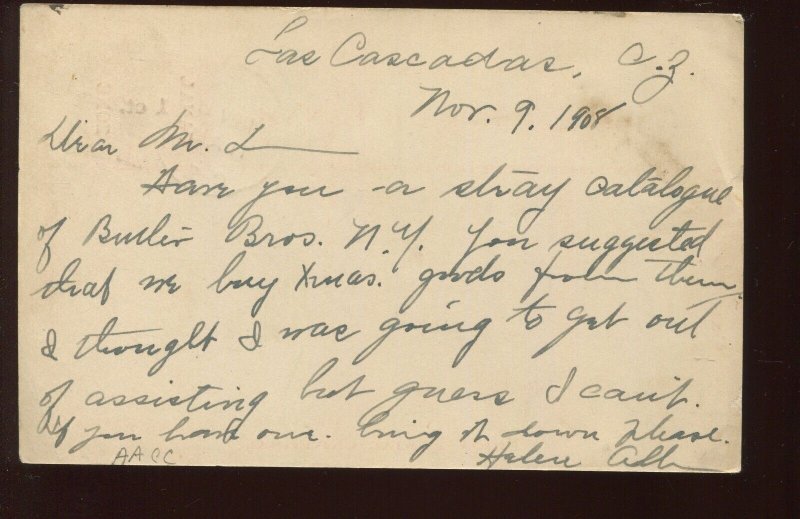 Las Cascadas, C.Z.
Nov. 9. 1908
Dear Mr. L
Have you a stray catalogue
of Butler Bros. N.Y. You suggested
that we buy Xmas. goods from them.
I thought I was going to get out
of assisting but guess I can't.
If you have one. bring it down please.
AACC
Helen